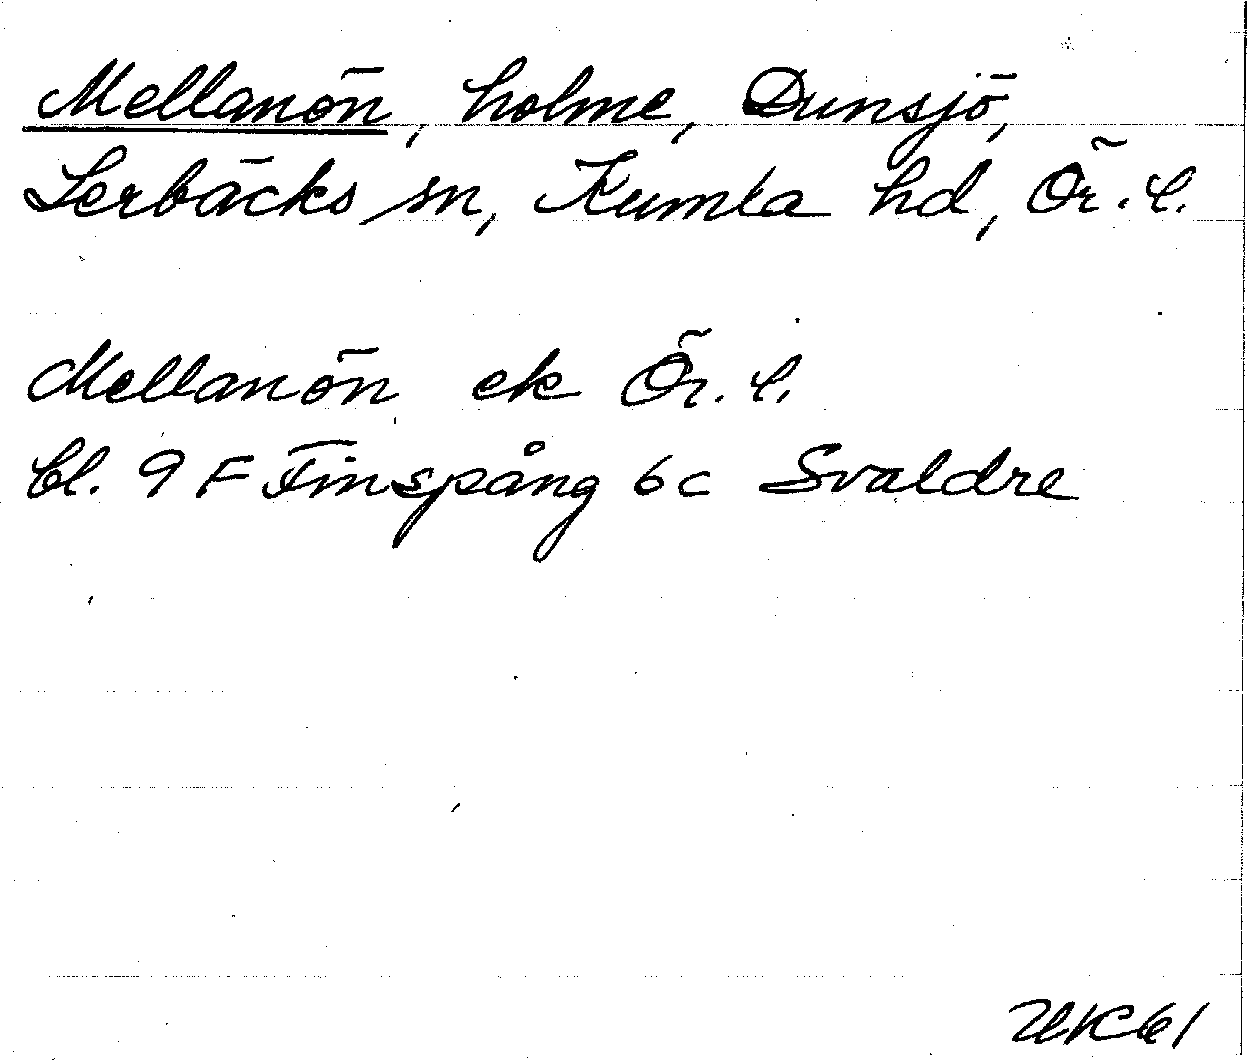 Mellanön, holme, Dunsjö,
Lerbäcks sn, Kumla hd, Ör. l.
Mellanön ek Ör. l.
bl. 9 F Finspång 6c Svaldre
UK61